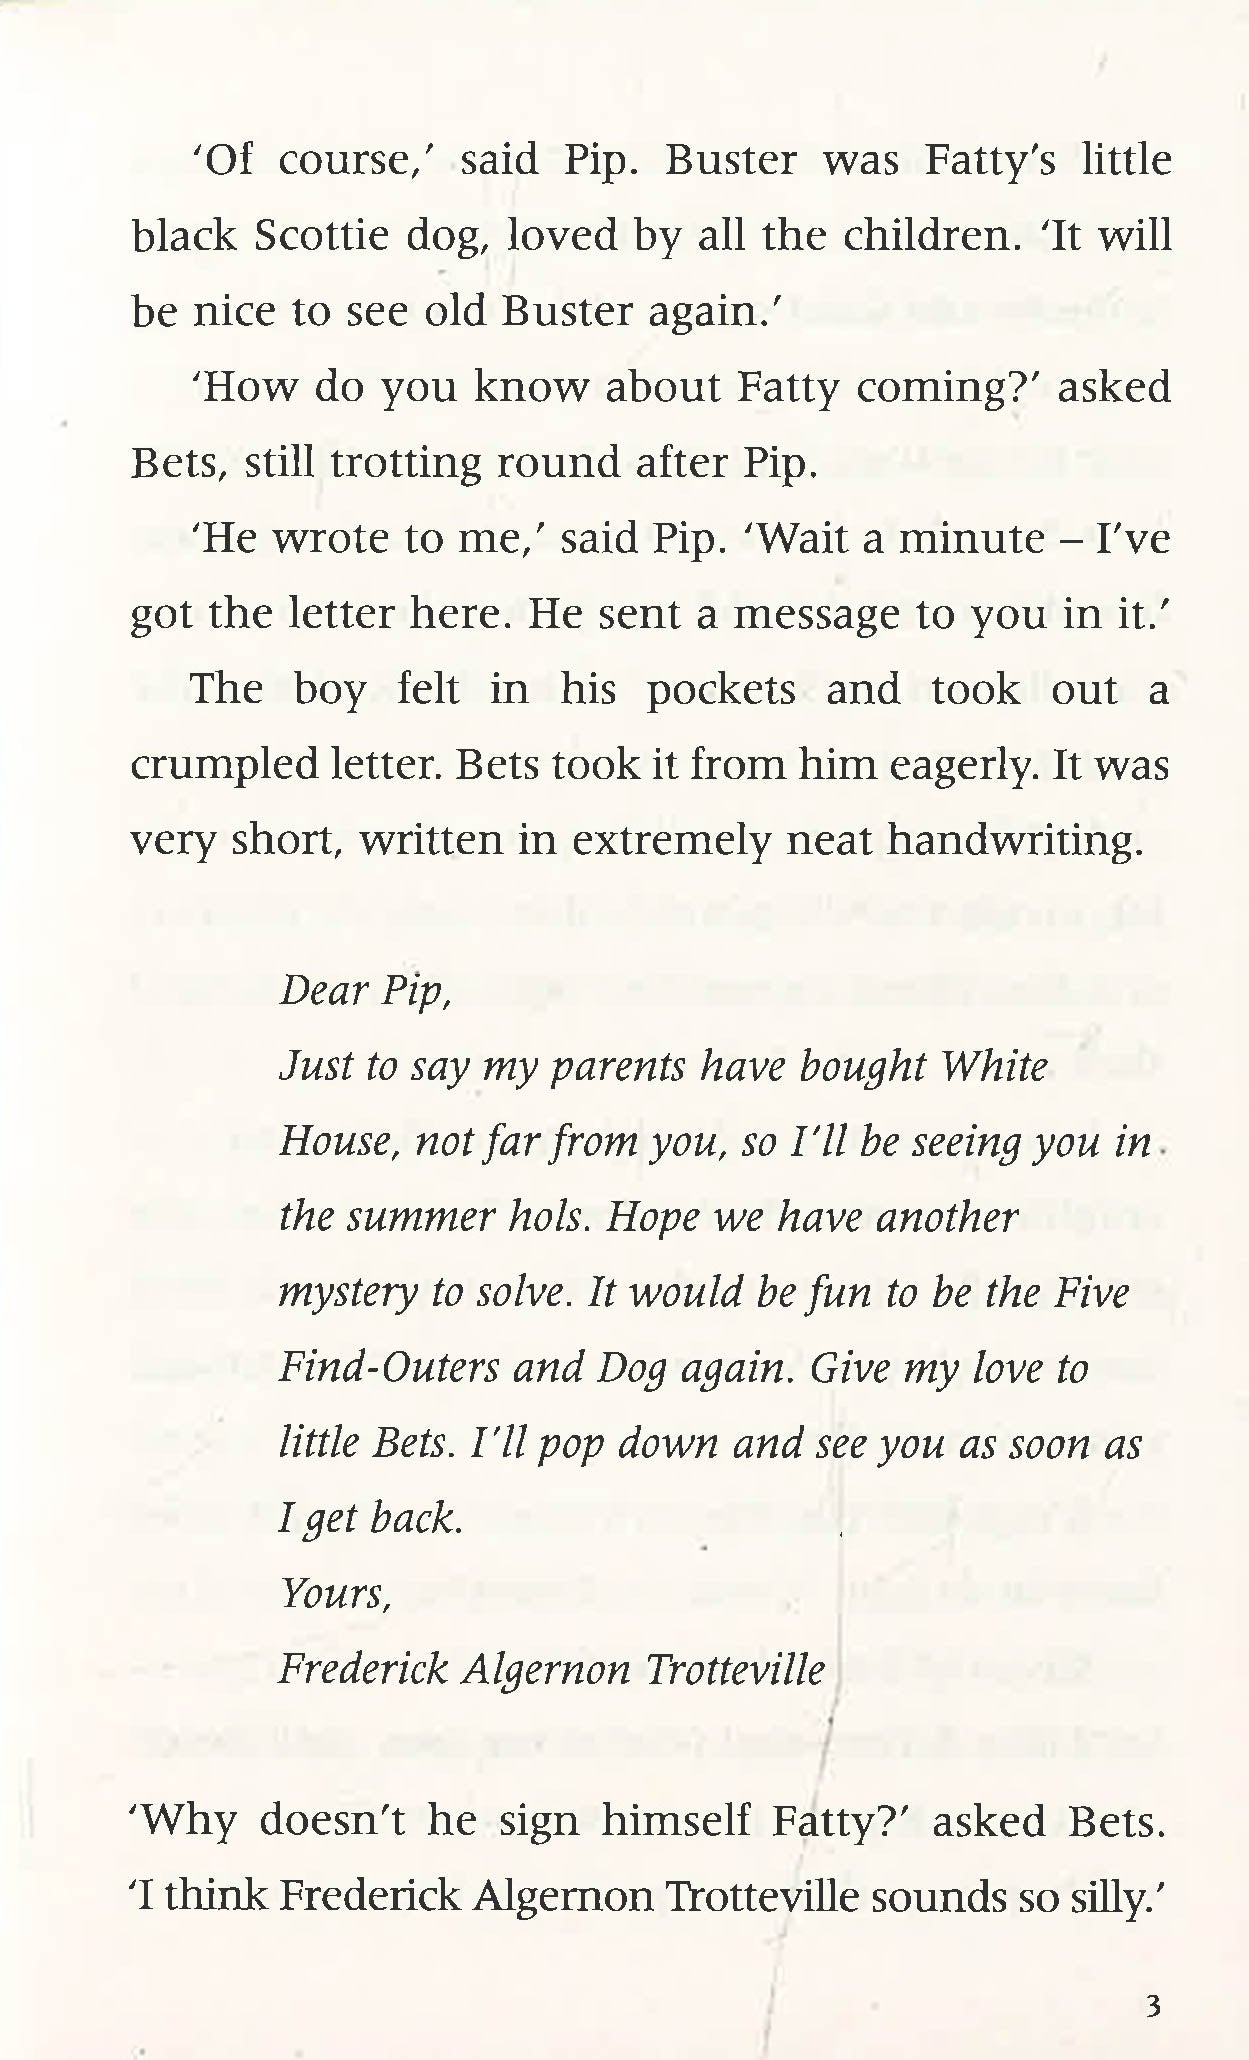 'Of course,' said Pip. Buster was Fatty's little
black Scottie dog, loved by all the children. 'It will
be nice to see old Buster again.'
'How do you know about Fatty coming?' asked
Bets, still trotting round after Pip.
'He wrote to me,' said Pip. 'Wait a minute – I've
got the letter here. He sent a message to you in it.'
The boy felt in his pockets and took out a
crumpled letter. Bets took it from him eagerly. It was
very short, written in extremely neat handwriting.
Dear Pip,
Just to say my parents have bought White
House, not far from you, so I'll be seeing you in
the summer hols. Hope we have another
mystery to solve. It would be fun to be the Five
Find-Outers and Dog again. Give my love to
little Bets. I'll pop down and see you as soon as
I get back.
Yours,
Frederick Algernon Trotteville
'Why doesn't he sign himself Fatty?' asked Bets.
'I think Frederick Algernon Trotteville sounds so silly.'
3